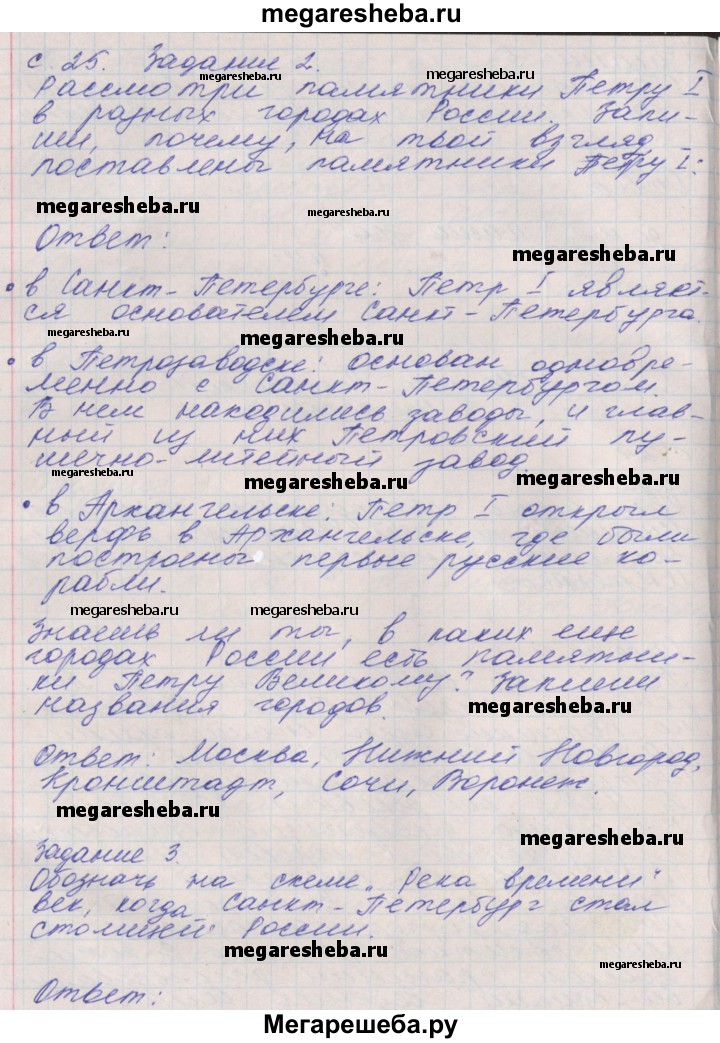 megaresheba.ru
с. 25. Задание 2.
megaresheba.ru
megaresheba.ru
Рассмотри памятники Петру I
в разных городах России. Запи-
ши, почему, на твой взгляд,
megaresheba.ru
megaresheba.ru
поставлены памятники Петру I:
megaresheba.ru
megaresheba.ru
Ответ:
megaresheba.ru
• в Санкт-Петербурге: Петр I являет-
ся основателем Санкт-Петербурга.
megaresheba.ru
megaresheba.ru
• в Петрозаводске: основан одновре-
менно с Санкт-Петербургом.
В нем находились заводы, и глав-
ный из них Петровский пу-
шечно-литейный завод.
megaresheba.ru
megaresheba.ru
• в Архангельске: Петр I открыл
верфь в Архангельске, где были
построены первые русские ко-
рабли.
megaresheba.ru
megaresheba.ru
megaresheba.ru
Знаешь ли ты, в каких еще
городах России есть памятни-
ки Петру Великому? Запиши
названия городов.
megaresheba.ru
Ответ: Москва, Нижний Новгород,
Кронштадт, Сочи, Воронеж.
megaresheba.ru
megaresheba.ru
Задание 3.
Обозначь на схеме „Река времени“
век, когда Санкт-Петербург стал
столицей России.
megaresheba.ru
megaresheba.ru
Ответ:
Мегарешеба.ру